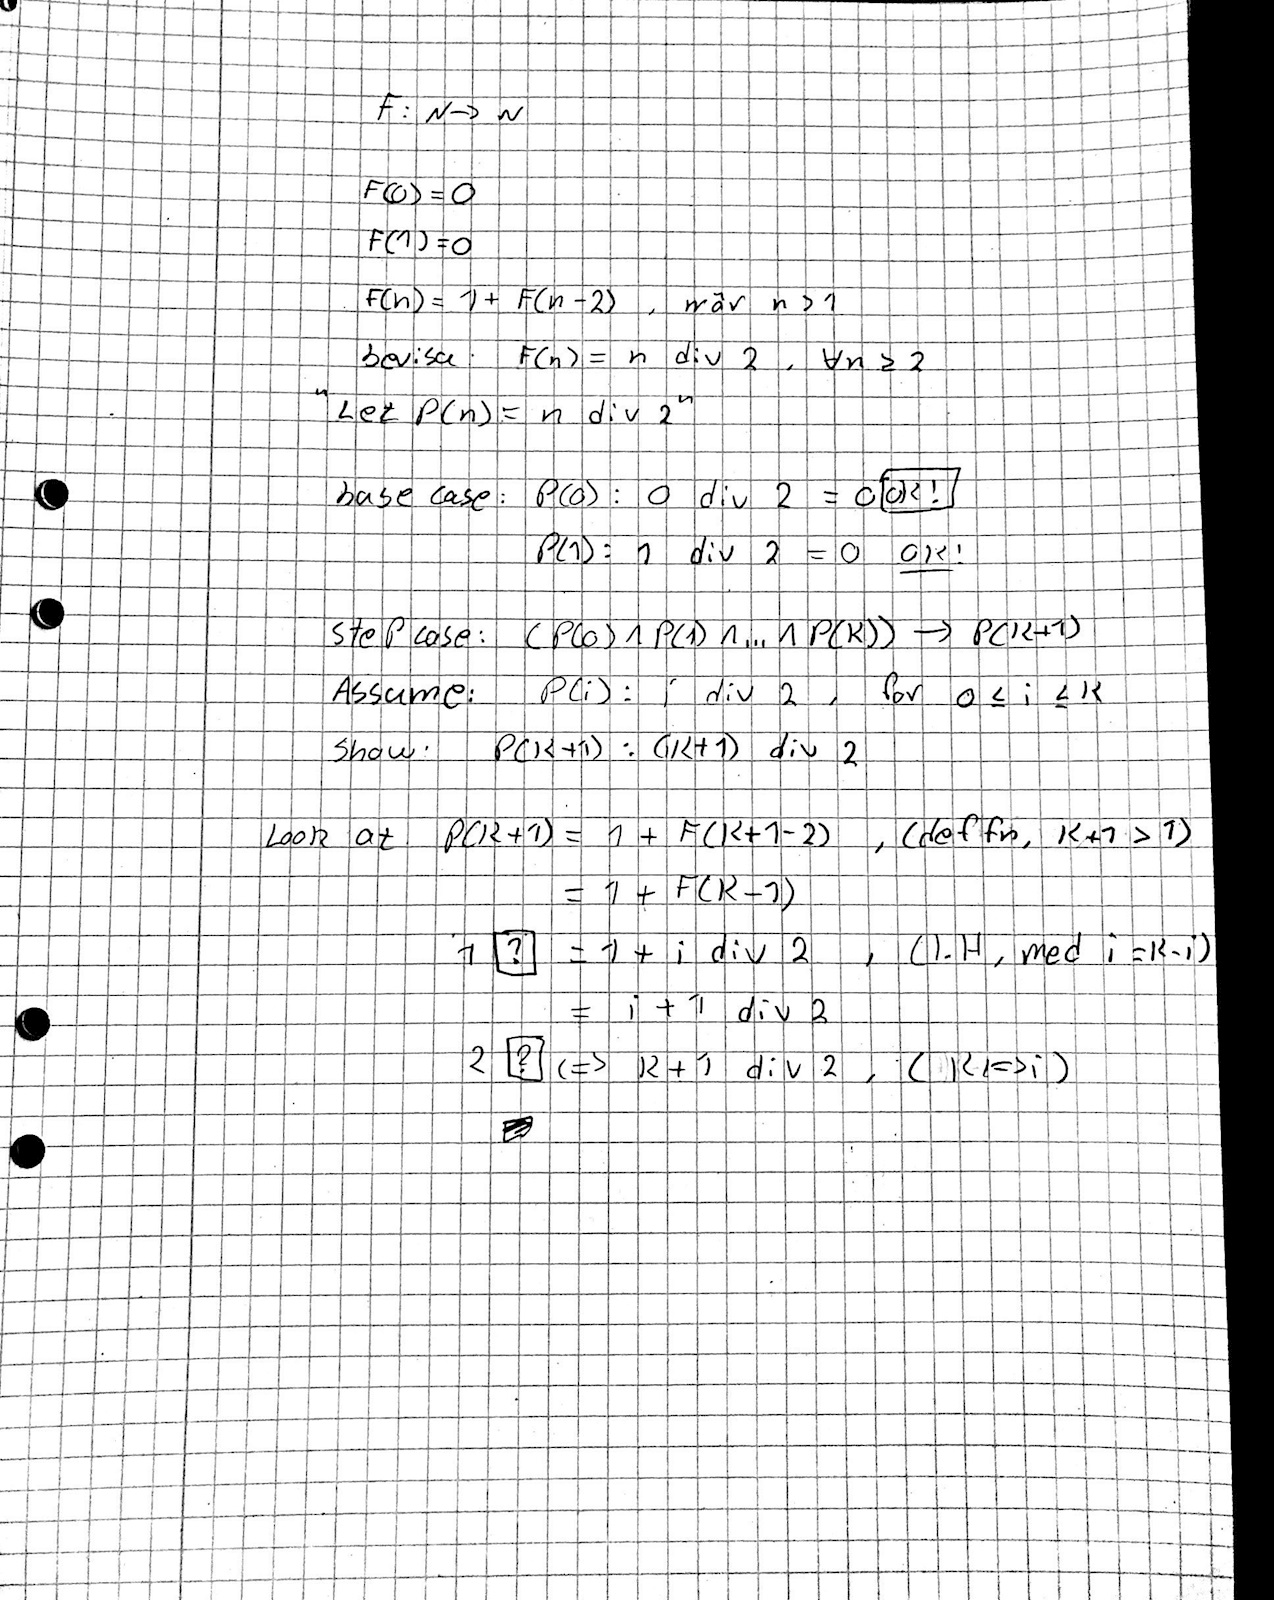 F: N → N
F(0) = 0
F(1) = 0
F(n) = 1 + F(n-2) , når n > 1
bevisa: F(n) = n div 2 , ∀n ≥ 2
"Let P(n) = n div 2"
base case: P(0): 0 div 2 = 0 OK!
P(1): 1 div 2 = 0 OK!
Step case: (P(0) ∧ P(1) ∧ ... ∧ P(K)) → P(K+1)
Assume: P(i): i div 2 , for 0 ≤ i ≤ K
Show: P(K+1) : (K+1) div 2
Look at P(K+1) = 1 + F(K+1-2) , (def fn, K+1 > 1)
= 1 + F(K-1)
1 ? = 1 + i div 2 , (I.H, med i = K-i)
= i + 1 div 2
2 ? <=> K+1 div 2 , ( K <=> i )